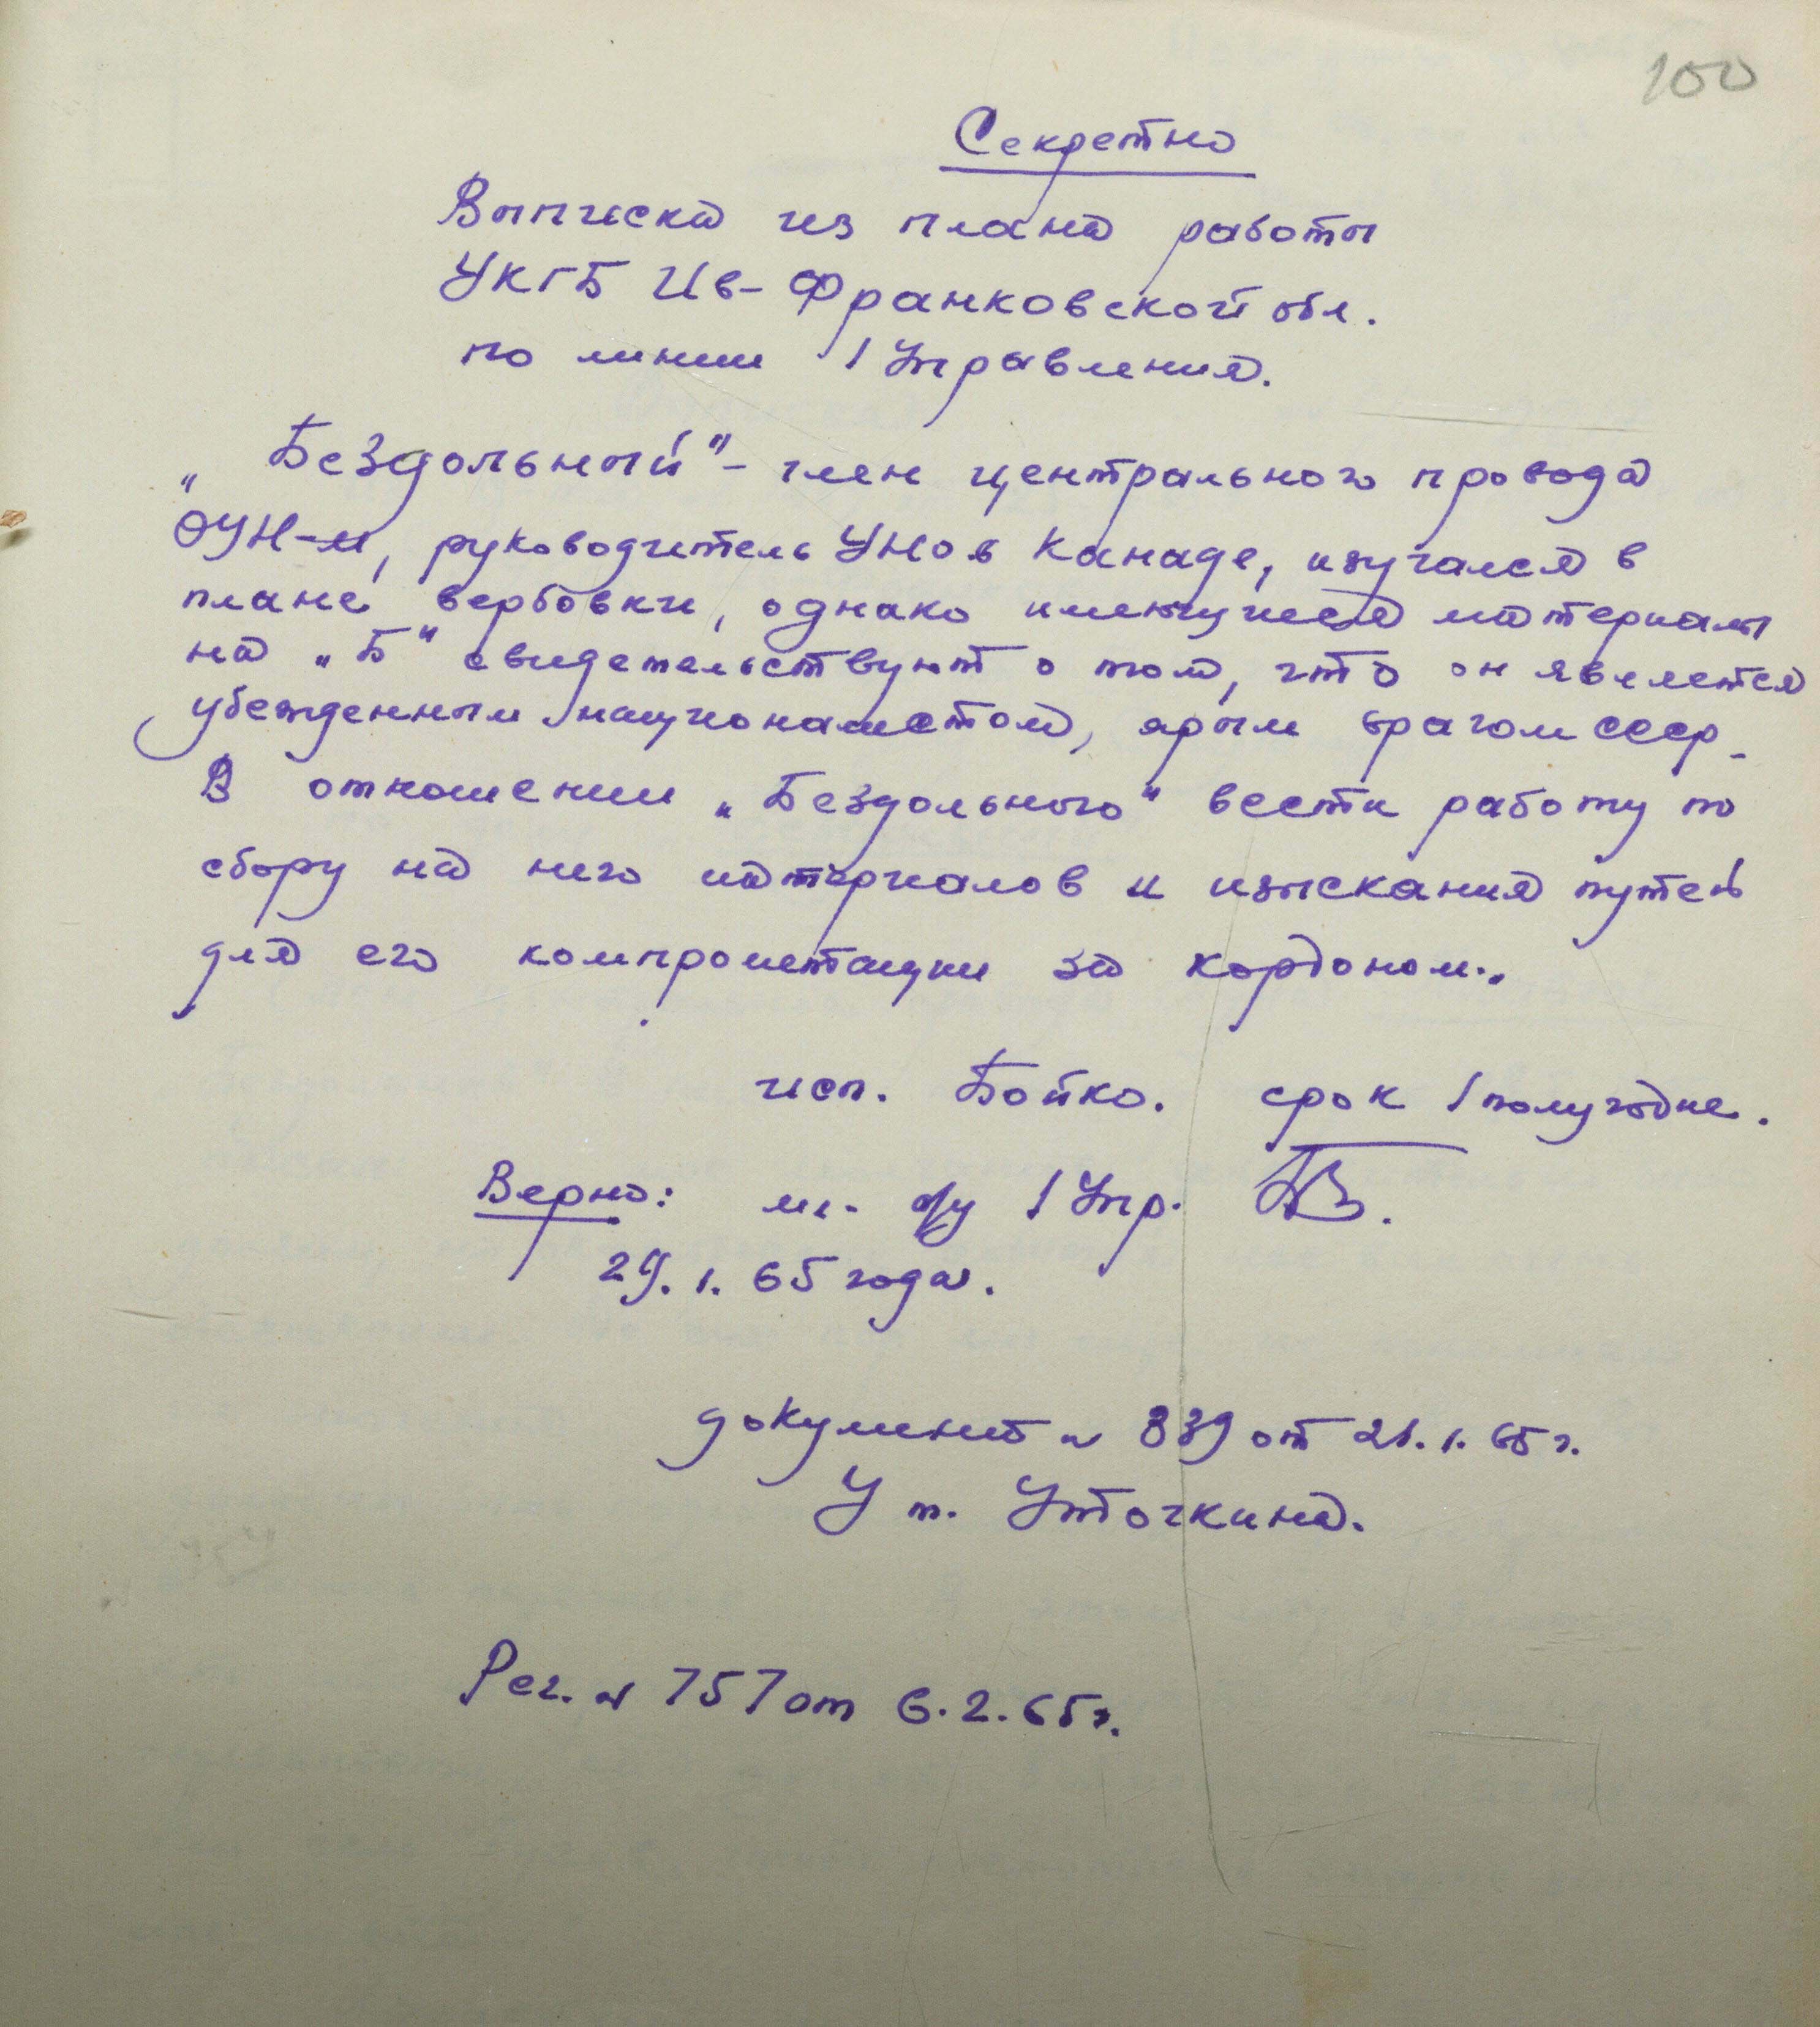 100
Секретно
Выписка из плана работы
УКГБ Ив-Франковской обл.
по линии 1 Управления.
„Бездольный" - член центрального провода
ОУН-м, руководитель УНО в Канаде, изучался в
плане вербовки, однако имеющиеся материалы
на „Б" свидетельствуют о том, что он является
убежденным националистом, ярым врагом СССР.
В отношении „Бездольного" вести работу по
сбору на него материалов и изыскания путей
для его компрометации за кордоном.
исп. Бойко. срок 1 полугодие.
Верно: мл. о/у 1 Упр.
29. 1. 65 года.
документ № 839 от 21. 1. 65 г.
У т. Уточкина.
Рег. № 757 от 6. 2. 65 г.